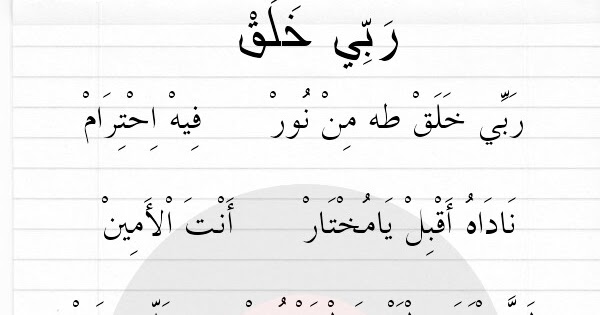 رَبِّي خَلَقْ
رَبِّي خَلَقْ طه مِنْ نُورْ فِيهْ اِحْتِرَامْ
نَادَاهُ أَقْبِلْ يَامُخْتَارْ أَنْتَ الْأَمِينْ